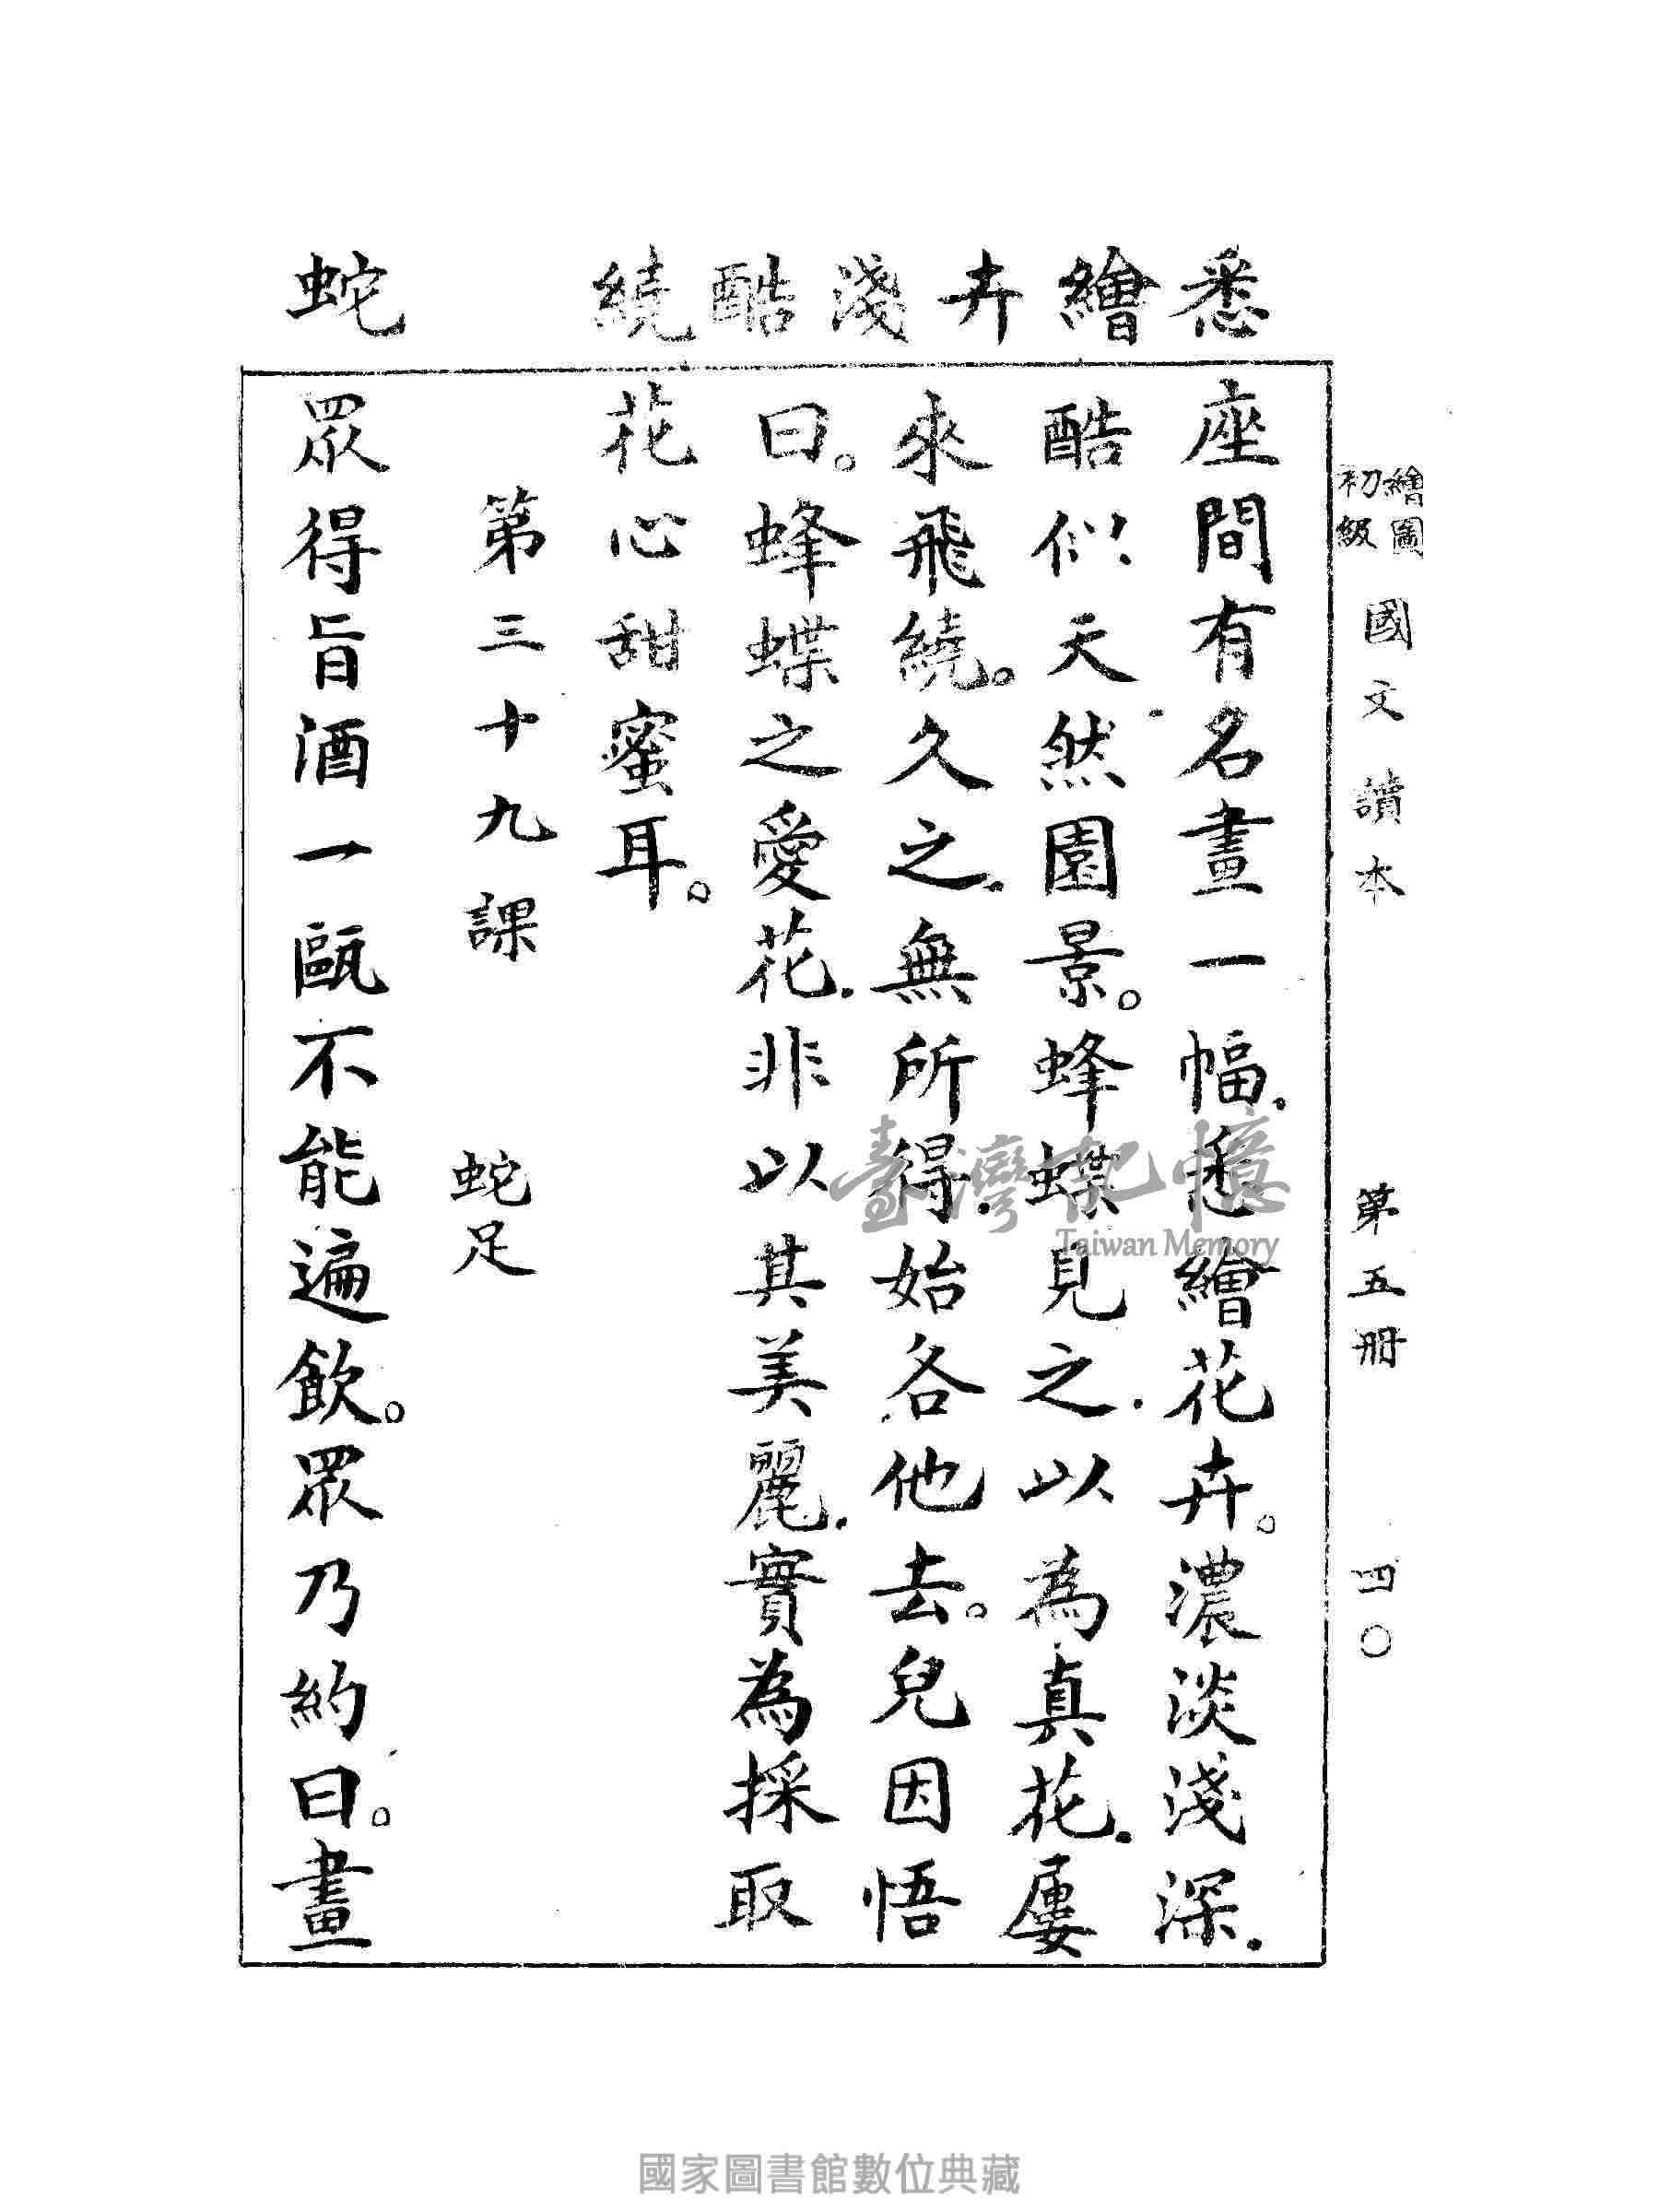 繪圖初級 國文讀本 第五冊 四〇
悉 繪 卉 淺 酷 繞 蛇
座間有名畫一幅．悉繪花卉。濃淡淺深．
酷似天然園景。蜂蝶見之．以為真花．屢
來飛繞。久之．無所得．始各他去。兒因悟
曰。蜂蝶之愛花．非以其美麗．實為採取
花心甜蜜耳。
第三十九課 蛇足
眾得旨酒一甌不能遍飲。眾乃約曰。畫
臺灣記憶
Taiwan Memory
國家圖書館數位典藏